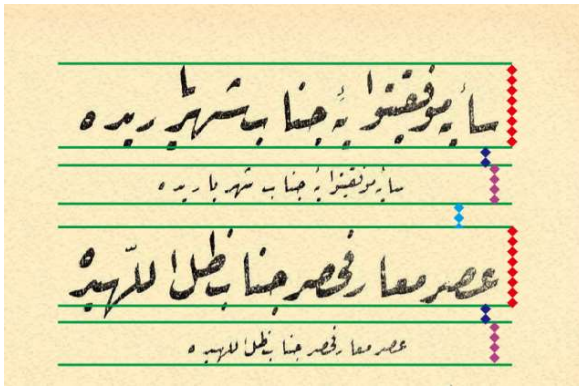 سایۀ موفقیتوایۀ جناب شهریاریده
سایۀ موفقیتوایۀ جناب شهریاریده
عصر معارفحصر جناب ظل اللّهیده
عصر معارفحصر جناب ظل اللهیده